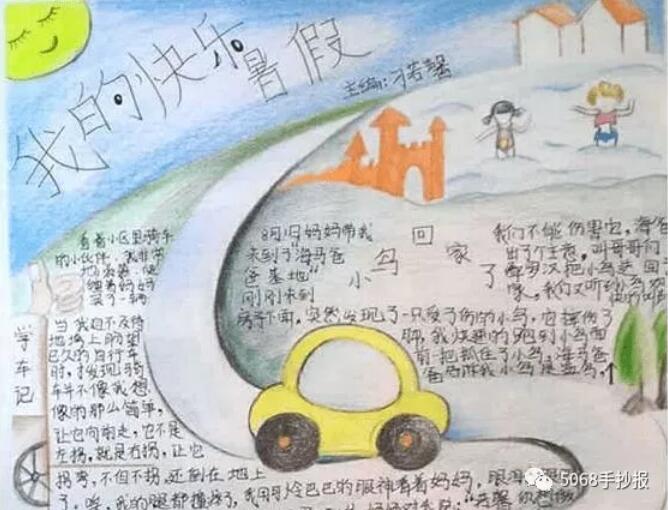 我的快乐暑假
主编:刁若馨
学车记
看着小区里骑车
的小伙伴,我非常
地羡慕,便
缠着妈妈
买了一辆
当我迫不及待
地骑上盼望
已久的自行车
时,才发现骑
车并不像我想
像的那么简单,
让它向前走,它不是
左拐,就是右拐,让它
拐弯,不但不拐,还倒在地上
了,哼,我的腿都撞
我用可怜巴巴的眼神看着妈妈,
小鸟回家了
8月1日妈妈带我
来到了"海马爸
爸基地"
刚刚来到
房子下面,突然发现了一只受了伤的小鸟,它摔伤了
脚,我快速的跑到小鸟面
前一把抓住了小鸟,海马爸
爸告诉我小鸟是益鸟,
我们不能伤害它,海爸
出了个主意,叫哥哥们
把小鸟送回
家,我们又听到小鸟
5068手抄报